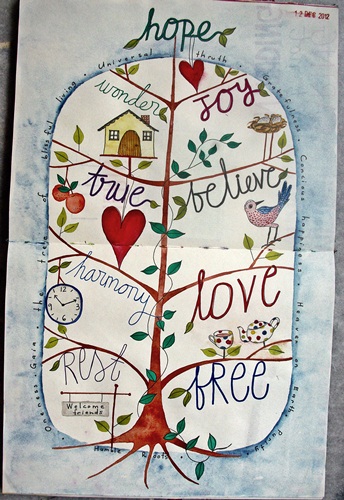 1 2 ENE 2012
hope
Universal truth
Gratefulness
Conscious happiness
Heaven on Earth
Purity
wonder
joy
true
believe
harmony
love
Rest
FREE
Welcome
friends
Humble Roots
Oneness · Gaia · the tribe of blissful living